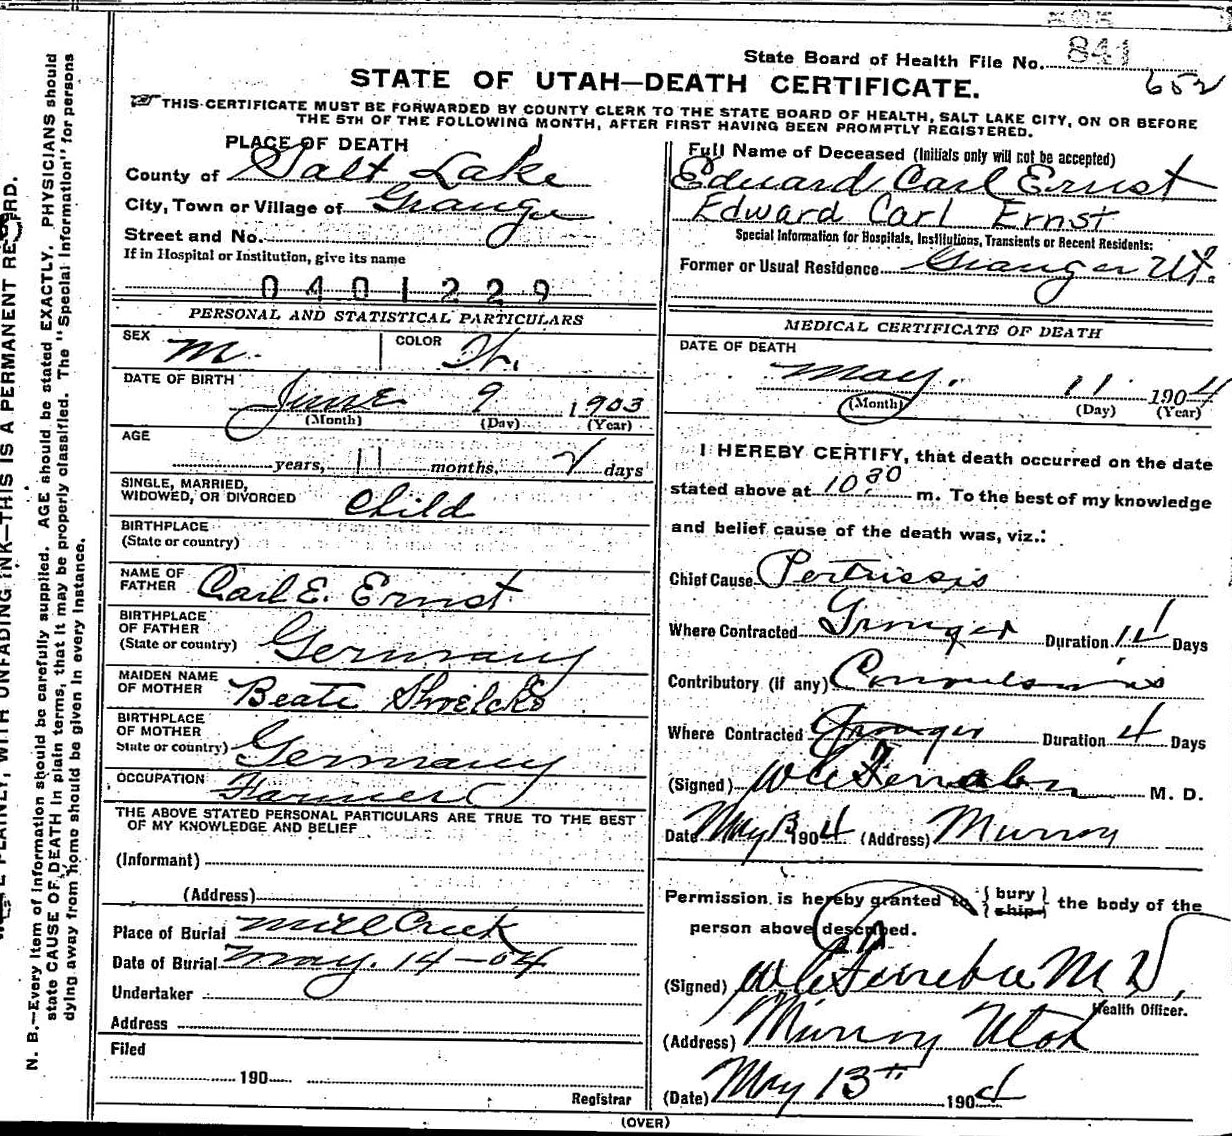 State Board of Health File No. 841
652
STATE OF UTAH—DEATH CERTIFICATE.
THIS CERTIFICATE MUST BE FORWARDED BY COUNTY CLERK TO THE STATE BOARD OF HEALTH, SALT LAKE CITY, ON OR BEFORE
THE 5TH OF THE FOLLOWING MONTH, AFTER FIRST HAVING BEEN PROMPTLY REGISTERED.
PLACE OF DEATH
County of Salt Lake
City, Town or Village of Granger
Street and No.
If in Hospital or Institution, give its name
0401229
PERSONAL AND STATISTICAL PARTICULARS
SEX M. COLOR W.
DATE OF BIRTH
June 9 1903
(Month) (Day) (Year)
AGE
years, 11 months, 2 days
SINGLE, MARRIED,
WIDOWED, OR DIVORCED Child
BIRTHPLACE
(State or country)
NAME OF
FATHER Carl E. Ernst
BIRTHPLACE
OF FATHER
(State or country) Germany
MAIDEN NAME
OF MOTHER Beate
BIRTHPLACE
OF MOTHER
State or country) Germany
OCCUPATION Farmer
THE ABOVE STATED PERSONAL PARTICULARS ARE TRUE TO THE BEST
OF MY KNOWLEDGE AND BELIEF
(Informant)
(Address)
Place of Burial Mill Creek
Date of Burial May. 14-04
Undertaker
Address
Filed
190
Registrar
Full Name of Deceased (Initials only will not be accepted)
Eduard Carl Ernst
Edward Carl Ernst
Special Information for Hospitals, Institutions, Transients or Recent Residents:
Former or Usual Residence Granger Ut.
MEDICAL CERTIFICATE OF DEATH
DATE OF DEATH
May. 11 1904
(Month) (Day) (Year)
I HEREBY CERTIFY, that death occurred on the date
stated above at 10:30 m. To the best of my knowledge
and belief cause of the death was, viz.:
Chief Cause Pertussis
Where Contracted Granger Duration 14 Days
Contributory (if any) Convulsions
Where Contracted Granger Duration 4 Days
(Signed) M. D.
Date May 13 1904 (Address) Murray
Permission is hereby granted to {bury
ship} the body of the
person above described.
(Signed) M D,
Health Officer.
(Address) Murray Utah
(Date) May 13th 1904
(OVER)
N. B.—Every item of information should be carefully supplied. AGE should be stated EXACTLY. PHYSICIANS should
state CAUSE OF DEATH in plain terms, that it may be properly classified. The "Special Information" for persons
dying away from home should be given in every instance.
PLAINLY, WITH UNFADING INK—THIS IS A PERMANENT RECORD.